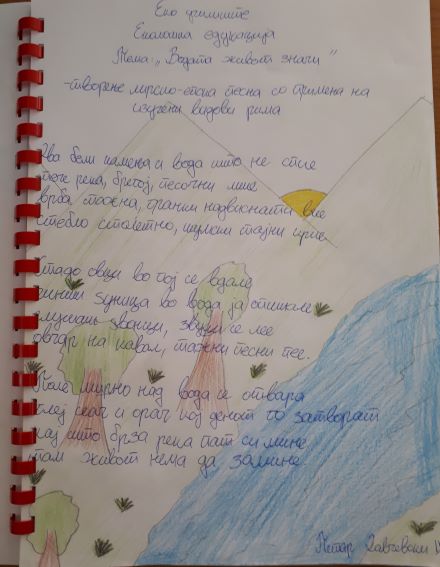 Еко училиште
Еколошка едукација
Тема: „Водата живот значи"
-творење лирско-епска песна со примена на
изучени видови рима
бели камења и вода што не спие
река, брегој, песочни мие
врба тажна, гранки надвиснати вие
стебло столетно, тајни крие
Стадо овци во тој се вдале
во вода ја
слушаш ѕвонци, звуци се лее
овчар на кавал, тажни песни пее.
Поле мирно над вода се отвара
сеач и орач кој денот го затвораат
кај што брза река пат си мине
там живот нема да замине
Петар